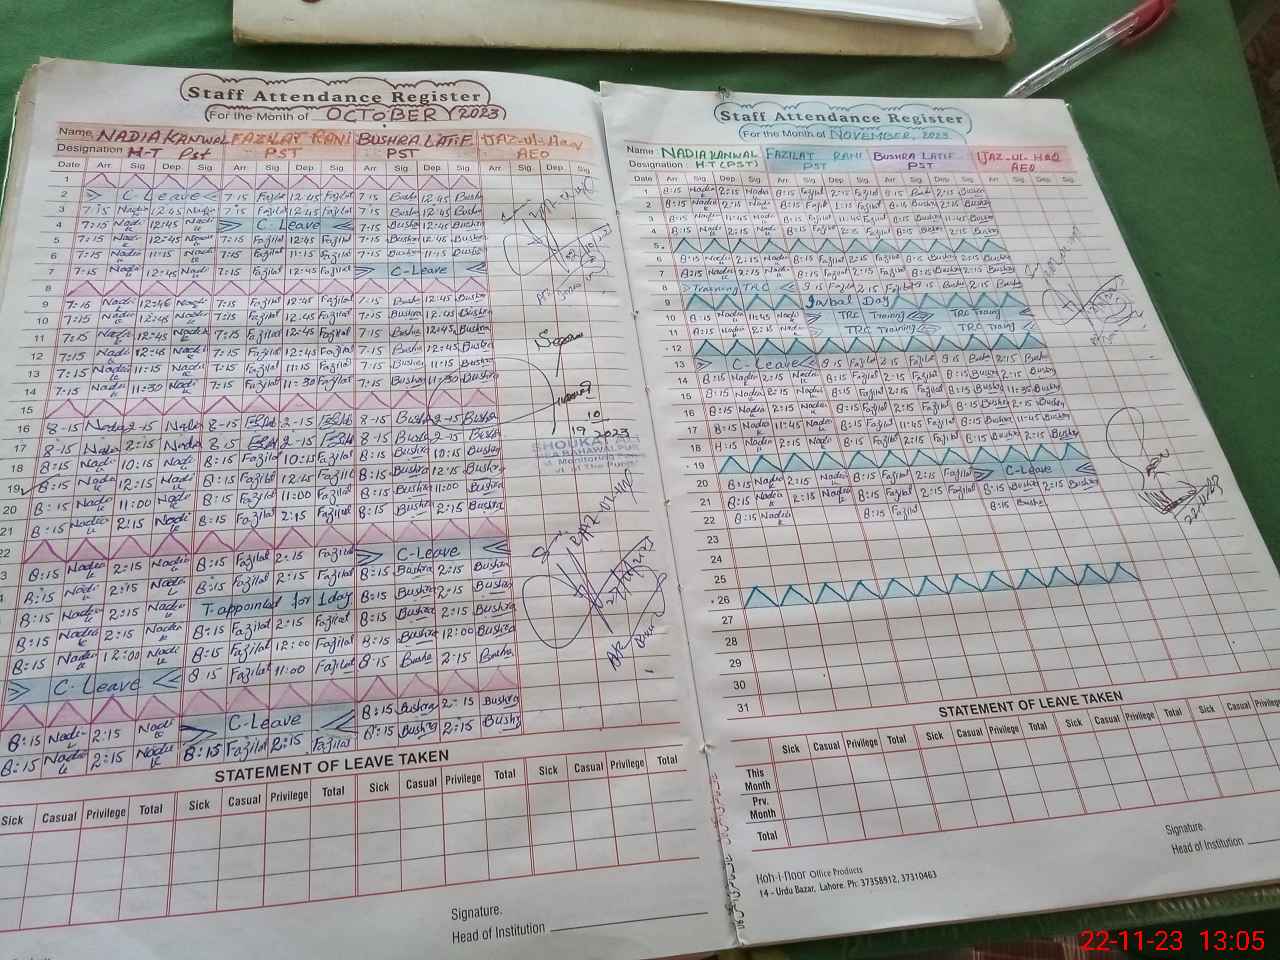 Staff Attendance Register
For the Month of OCTOBER (2023)
Name NADIA KANWAL FAZILAT RANI BUSHRA LATIF IJAZ-UL-HAQ
Designation H-T Pst PST PST AEO
Date Arr. Sig. Dep. Sig. Arr. Sig. Dep. Sig. Arr. Sig. Dep. Sig. Arr. Sig. Dep. Sig.
1
2 C-Leave 7:15 Fazilat 12:45 Fazilat 7:15 Bushra 12:45 Bushra
3 7:15 Nadia 12:45 Nadia 7:15 Fazilat 12:45 Fazilat 7:15 Bushra 12:45 Bushra
4 7:15 Nadia 12:45 Nadia C-Leave 7:15 Bushra 12:45 Bushra
5 7:15 Nadia 12:45 Nadia 7:15 Fazilat 12:45 Fazilat 7:15 Bushra 12:45 Bushra
6 7:15 Nadia 11:15 Nadia 7:15 Fazilat 11:15 Fazilat 7:15 Bushra 11:15 Bushra
7 7:15 Nadia 12:45 Nadi 7:15 Fazilat 12:45 Fazilat C-Leave
8
9 7:15 Nadi 12:46 Nadi 7:15 Fazilat 12:45 Fazilat 7:15 Bushra 12:45 Bushra
10 7:15 Nadi 12:45 Nadi 7:15 Fazilat 12:45 Fazilat 7:15 Bushra 12:45 Bushra
11 7:15 Nadi 12:45 Nadi 7:15 Fazilat 12:45 Fazilat 7:15 Bushra 12:45 Bushra
12 7:15 Nadi 12:45 Nadi 7:15 Fazilat 12:45 Fazilat 7:15 Bushra 12:45 Bushra
13 7:15 Nadi 11:15 Nadi 7:15 Fazilat 11:15 Fazilat 7:15 Bushra 11:15 Bushra
14 7:15 Nadi 11:30 Nadi 7:15 Fazilat 11:30 Fazilat 7:15 Bushra 11:30 Bushra
15
16 8-15 Nadia 2-15 Nadia 8-15 2-15 8-15 Bushra 2-15 Bushra
17 8-15 Nadia 2:15 Nadia 8-15 2-15 8-15 Bushra 2-15 Bushra
18 8:15 Nadi 10:15 Nadi 8:15 Fazilat 10:15 Fazilat 8:15 Bushra 10:15 Bushra
19 8:15 Nadi 12:15 Nadi 8:15 Fazilat 12:15 Fazilat 8:15 Bushra 12:15 Bushra
20 8:15 Nadi 11:00 Nadi 8:15 Fazilat 11:00 Fazilat 8:15 Bushra 11:00 Bushra
21 8:15 Nadi 2:15 Nadi 8:15 Fazilat 2:15 Fazilat 8:15 Bushra 2:15 Bushra
22
8:15 Nadia 2:15 Nadi 8:15 Fazilat 2:15 Fazilat C-Leave
8:15 Nadi 2:15 Nadi 8:15 Fazilat 2:15 Fazilat 8:15 Bushra 2:15 Bushra
8:15 Nadi 2:15 Nadi T.appointed for 1day 8:15 Bushra 2:15 Bushra
8:15 Nadi 2:15 Nadi 8:15 Fazilat 2:15 Fazilat 8:15 Bushra 2:15 Bushra
8:15 Nadi 12:00 Nadi 8:15 Fazilat 12:00 Fazilat 8:15 Bushra 12:00 Bushra
C-Leave 8:15 Fazilat 11:00 Fazilat 8:15 Bushra 2:15 Bushra
8:15 Nadi 2:15 Nadi C-Leave 8:15 Bushra 2:15 Bushra
8:15 Nadi 2:15 Nadi 8:15 Fazilat 2:15 Fazilat 8:15 Bushra 2:15 Bushra
19 10 2023
SHOUKAT ALI
STATEMENT OF LEAVE TAKEN
Sick Casual Privilege Total Sick Casual Privilege Total Sick Casual Privilege Total Sick Casual Privilege Total
Signature.
Head of Institution
Staff Attendance Register
For the Month of NOVEMBER, 2023
Name NADIA KANWAL FAZILAT RANI BUSHRA LATIF IJAZ-UL-HAQ
Designation H-T (PST) PST PST AEO
Date Arr. Sig. Dep. Sig. Arr. Sig. Dep. Sig. Arr. Sig. Dep. Sig. Arr. Sig. Dep. Sig.
1 8:15 Nadia 2:15 Nadia 8:15 Fazilat 2:15 Fazilat 8:15 Bushra 2:15 Bushra
2 8:15 Nadia 2:15 Nadi 8:15 Fazilat 2:15 Fazilat 8:15 Bushra 2:15 Bushra
3 8:15 Nadia 11:45 Nadi 8:15 Fazilat 11:45 Fazilat 8:15 Bushra 11:45 Bushra
4 8:15 Nadia 2:15 Nadi 8:15 Fazilat 2:15 Fazilat 8:15 Bushra 2:15 Bushra
5
6 8:15 Nadia 2:15 Nadia 8:15 Fazilat 2:15 Fazilat 8:15 Bushra 2:15 Bushra
7 8:15 Nadia 2:15 Nadi 8:15 Fazilat 2:15 Fazilat 8:15 Bushra 2:15 Bushra
8 Training TRC 8:15 Fazilat 2:15 Fazilat 8:15 Bushra 2:15 Bushra
9 Iqbal Day
10 8:15 Nadi 11:45 Nadi TRC Training TRC Training
11 8:15 Nadi 2:15 Nadi TRC Training TRC Traing
12
13 C-Leave 8:15 Fazilat 2:15 Fazilat 8:15 Bushra 2:15 Bushra
14 8:15 Nadia 2:15 Nadia 8:15 Fazilat 2:15 Fazilat 8:15 Bushra 2:15 Bushra
15 8:15 Nadia 2:15 Nadia 8:15 Fazilat 2:15 Fazilat 8:15 Bushra 11:35 Bushra
16 8:15 Nadia 11:45 Nadia 8:15 Fazilat 2:15 Fazilat 8:15 Bushra 2:15 Bushra
17 8:15 Nadia 11:45 Nadi 8:15 Fazilat 11:45 Fazilat 8:15 Bushra 11:45 Bushra
18 8:15 Nadia 2:15 Nadi 8:15 Fazilat 2:15 Fazilat 8:15 Bushra 2:15 Bushra
19
20 8:15 Nadia 2:15 Nadi 8:15 Fazilat 2:15 Fazilat C-Leave
21 8:15 Nadia 2:15 Nadia 8:15 Fazilat 2:15 Fazilat 8:15 Bushra 2:15 Bushra
22 8:15 Nadia 8:15 Fazilat 8:15 Bushra
23
24
25
26
27
28
29
30
31
STATEMENT OF LEAVE TAKEN
Sick Casual Privilege Total Sick Casual Privilege Total Sick Casual Privilege Total Sick Casual Privilege
This Month
Prv. Month
Total
Signature.
Head of Institution
Koh-i-Noor Office Products
14 - Urdu Bazar, Lahore. Ph: 37358912, 37310463
22-11-23 13:05